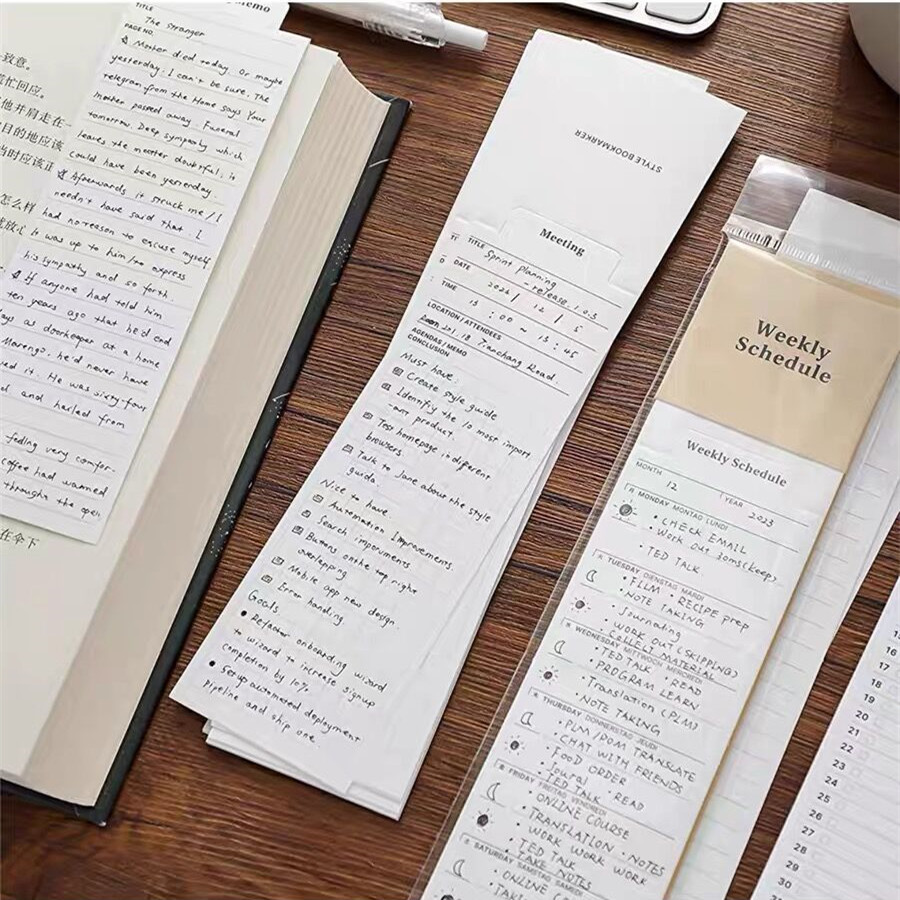 Memo
TITLE
The Stranger
PAGE NO.
Mother died today. Or maybe
yesterday. I can't be sure. The
telegram from the Home says Your
mother passed away. Funeral
tomorrow. Deep sympathy which
leaves the matter doubtful; it
could have been yesterday.
Afterwards it struck me / I
needn't have said that. I
had no reason to excuse myself
it was up to him/to express
his sympathy and so forth.
If anyone had told him
ten years ago that he'd end
days as doorkeeper at a home
Marengo, he'd never have
ed it. He was sixty-four
and hailed from
feeling very comfor-
coffee had warmed
through the open
致意。
忙回应。
他并肩走在
目的地应该
当时应该正
怎么样
就放心
在伞下
STYLE BOOKMARKER
Meeting
TITLE Sprint planning
- release 1.0.3
DATE 2026 / 12 / 5
TIME 13 : 00 ~ 13 : 45
LOCATION / ATTENDEES
Room 201.18 Tianchang Road.
AGENDAS / MEMO
CONCLUSION
Must have:
Create style guide
Identify the 10 most import
-ant product.
Test homepage in diferent
browsers.
Talk to Jane about the style
guide.
Nice to have.
Automation Improvements.
Search imporvments
Buttons on the top right
overlapping
Mobile app new design.
Error handling
Goals
Refactor onboarding
to wizard to increase signup
completion by 10%.
Setup automated deployment
pipeline and ship one.
Weekly
Schedule
Weekly Schedule
MONTH 12 YEAR 2023
MONDAY MONTAG LUNDI
· CHECK EMAIL
· Work out 30ms(keep)
· TED TALK
TUESDAY DIENSTAG MARDI
· FILM · RECIPE prep
· NOTE TAKING
· Journating
· WORK OUT (SKIPPING)
· COLLELT MATERIAL
WEDNESDAY MITTWOCH MERCREDI
· TED TALK · READ
· PROGRAM LEARN
· Translation (PLM)
· NOTE TAKING
THURSDAY DONNERSTAG JEUDI
· PLM/POM TRANSLATE
· CHAT WITH FRIENDS
· FOOD ORDER
· Joural · READ
· TED TALK
FRIDAY FREITAG VENDREDI
· ONLINE COURSE
· TRANSLATION · NOTES
· WORK WORK WORK
· TED TALK
· TAKE NOTES
SATURDAY SAMSTAG SAMEDI
· ONLINE
15
16
17
18
19
20
21
22
23
24
25
26
27
28
29
30